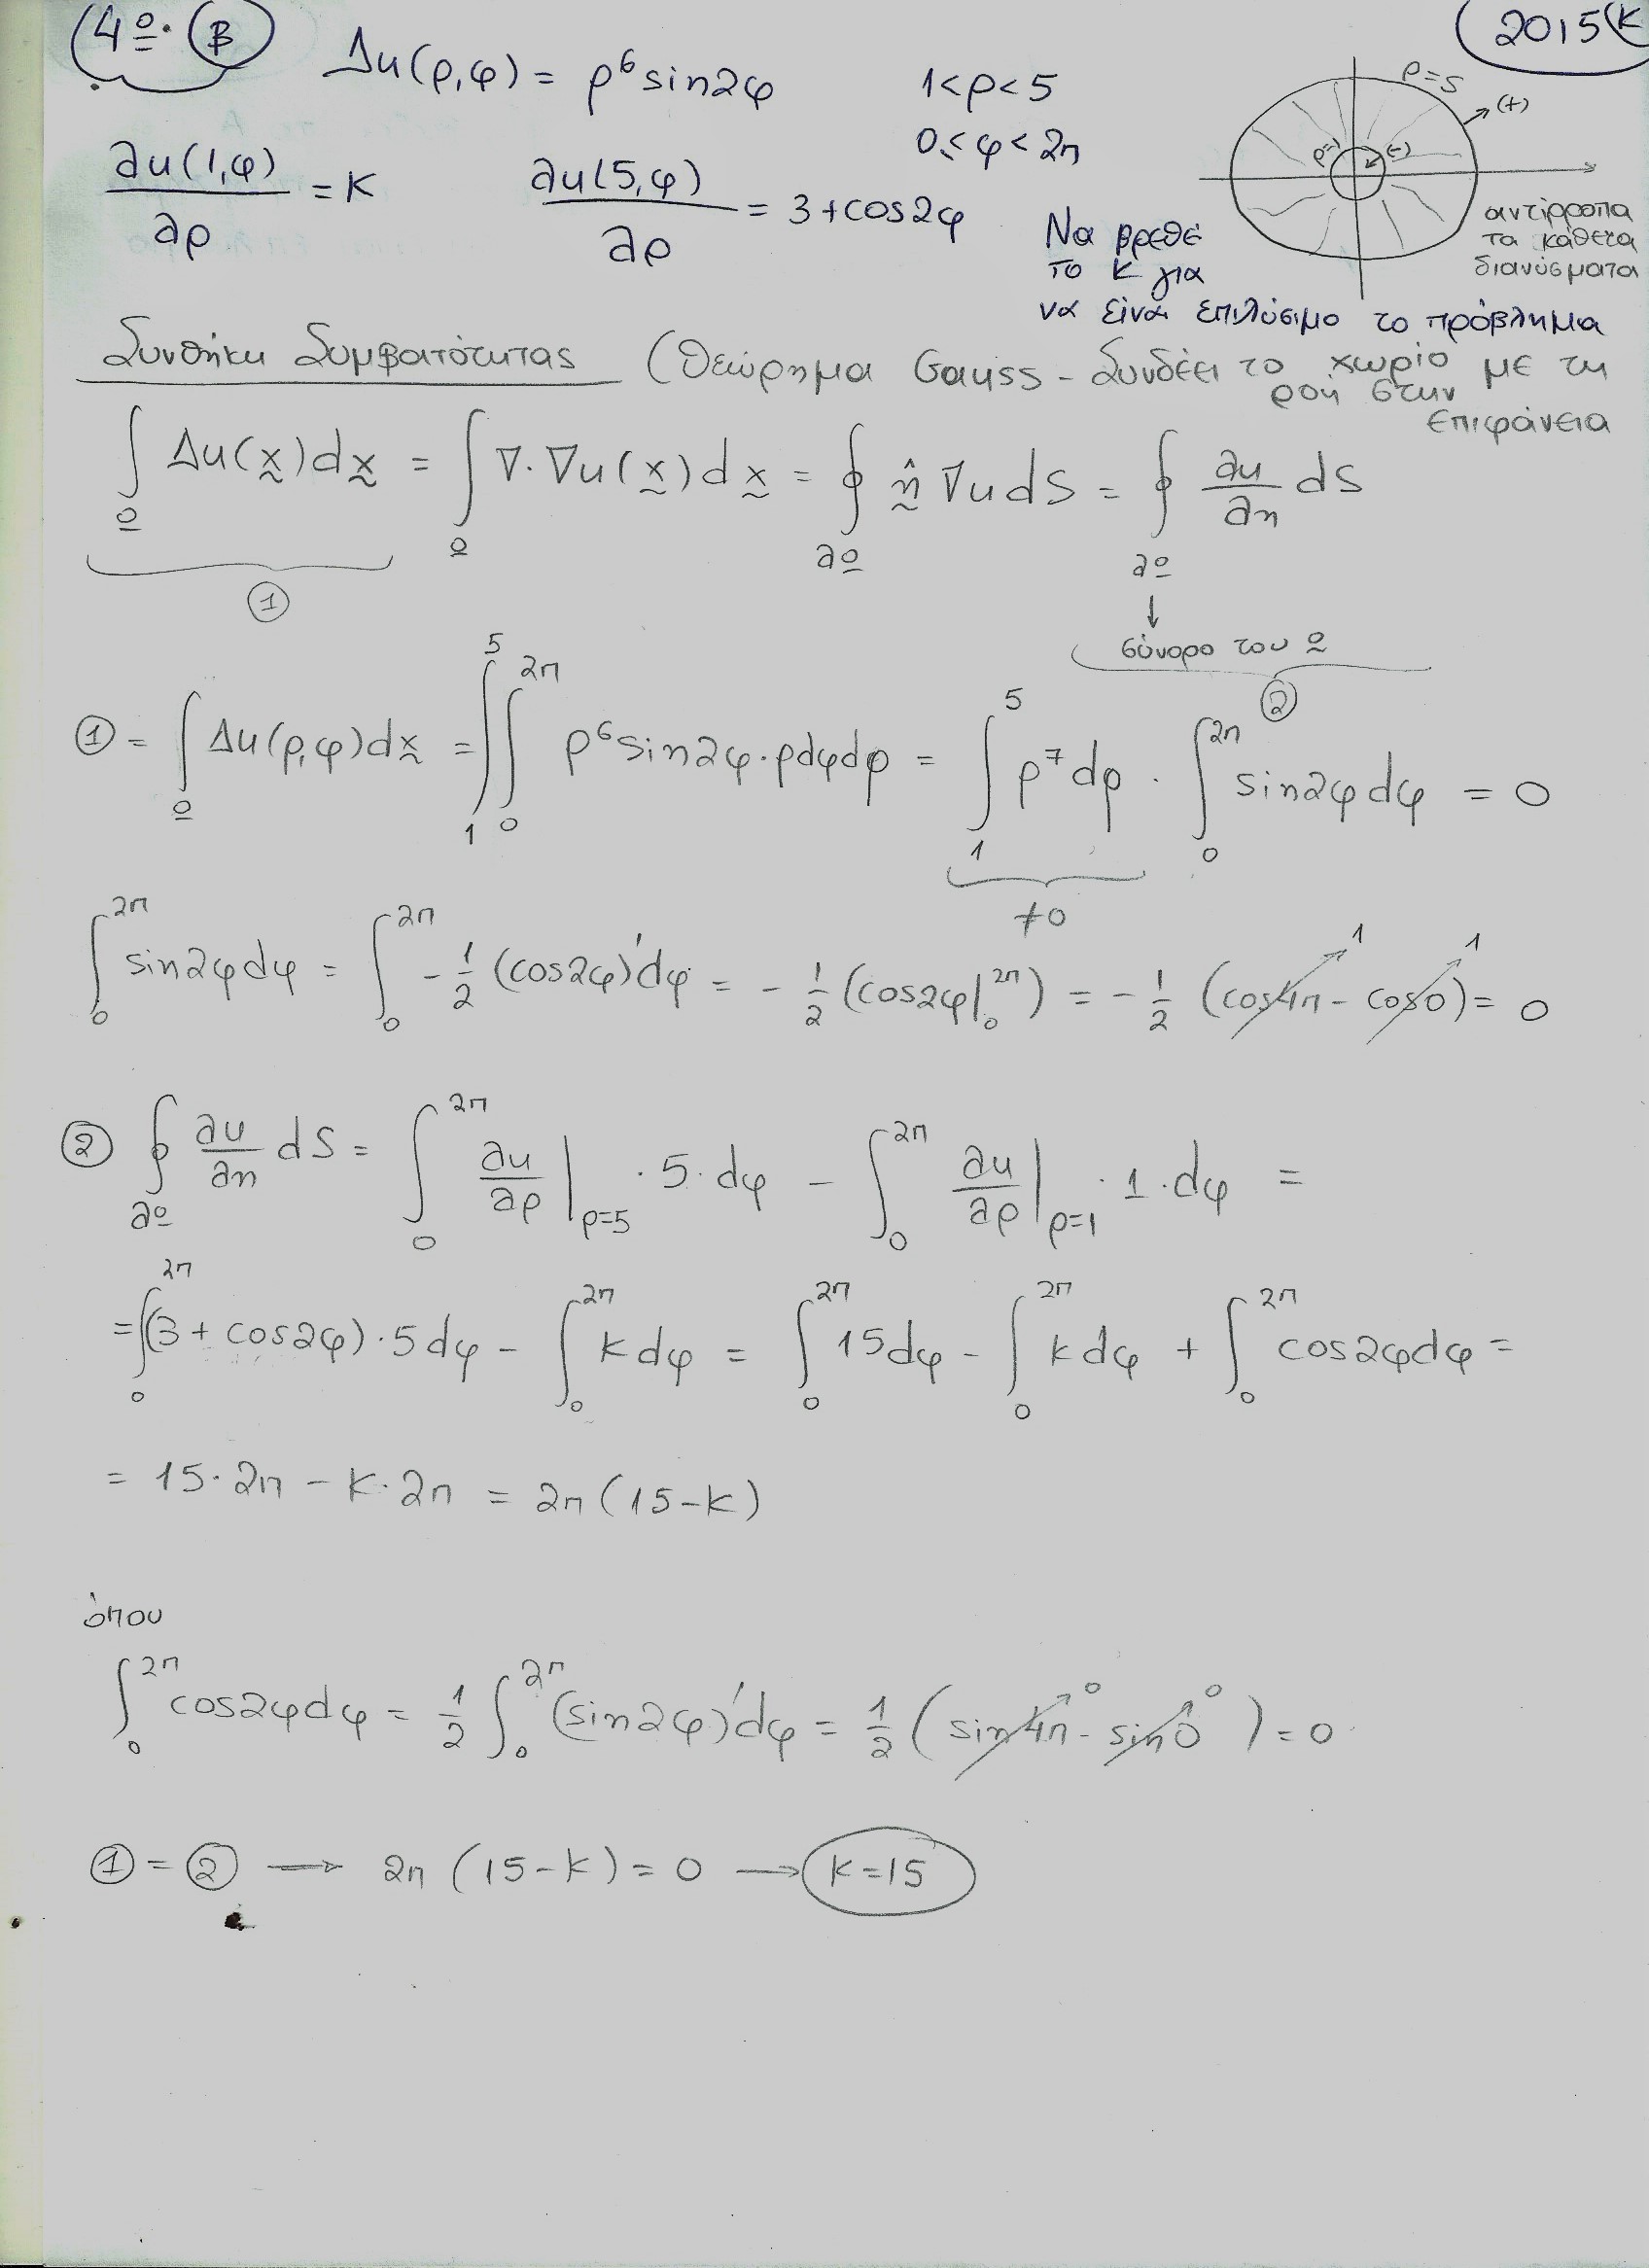 4º. Β
2015 (Κ
Δu(ρ,φ) = ρ⁶sin2φ
1<ρ<5
0≤φ<2π
∂u(1,φ)/∂ρ = K
∂u(5,φ)/∂ρ = 3+cos2φ
ρ=5
(+)
ρ=1
(-)
αντίρροπα
τα κάθετα
διανύσματα
Να βρεθεί
το K για
να είναι επιλύσιμο το πρόβλημα
Συνθήκη Συμβατότητας (Θεώρημα Gauss - Συνδέει το χωρίο με τη
ροή στην
επιφάνεια
∫_Ω Δu(x)dx = ∫_Ω ∇·∇u(x)dx = ∮_∂Ω n̂ ∇u dS = ∮_∂Ω ∂u/∂n dS
①
↓
σύνορο του Ω
②
① = ∫_Ω Δu(ρ,φ)dx = ∫₁⁵∫₀^2π ρ⁶sin2φ·ρdφdρ = ∫₁⁵ ρ⁷dρ · ∫₀^2π sin2φdφ = 0
≠0
∫₀^2π sin2φdφ = ∫₀^2π -1/2 (cos2φ)'dφ = -1/2 (cos2φ|₀^2π) = -1/2 (cos4π - cos0) = 0
1 1
② ∮_∂Ω ∂u/∂n dS = ∫₀^2π ∂u/∂ρ|ρ=5 · 5 · dφ - ∫₀^2π ∂u/∂ρ|ρ=1 · 1 · dφ =
= ∫₀^2π (3+cos2φ)·5dφ - ∫₀^2π Kdφ = ∫₀^2π 15dφ - ∫₀^2π Kdφ + ∫₀^2π cos2φdφ =
= 15·2π - K·2π = 2π(15-K)
όπου
∫₀^2π cos2φdφ = 1/2 ∫₀^2π (sin2φ)'dφ = 1/2 (sin4π - sin0) = 0
0 0
① = ② → 2π (15-K) = 0 → K=15